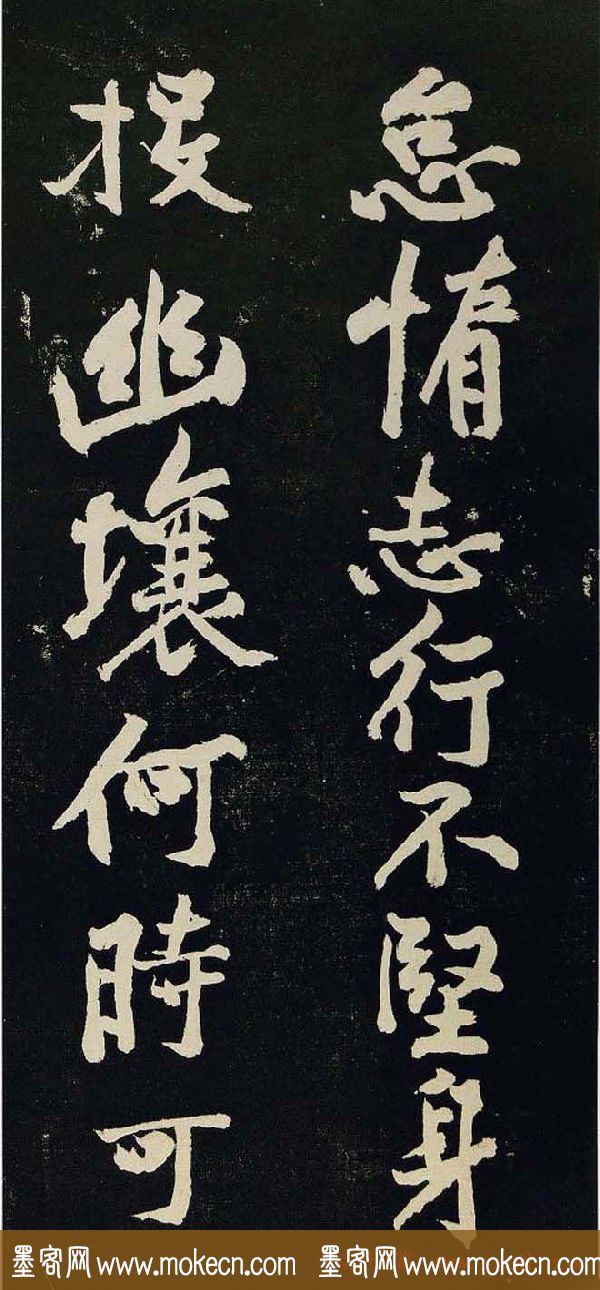 怠惰志行不堅身
投幽壤何時可
墨客网 www.mokecn.com 墨客网 www.mokecn.com